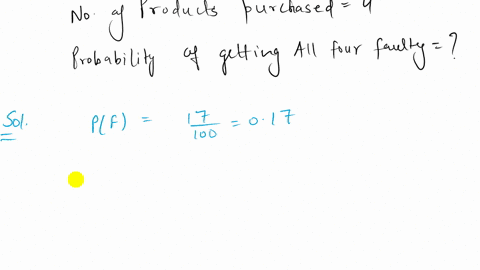 No. of Products purchased = 4
Probability of getting All four faulty = ?
Sol. P(F) = 17/100 = 0.17